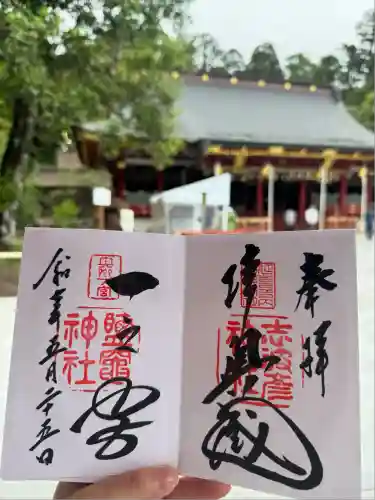 奉拝
陸奥國
志波彦
神社
一之宮
鹽竈
神社
令和元年五月二十五日